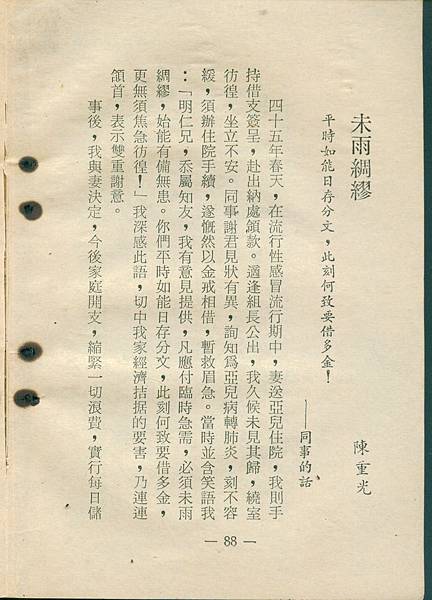 未雨綢繆
平時如能日存分文，此刻何致要借多金！
——同事的話
陳重光
四十五年春天，在流行性感冒流行期中，妻送亞兒住院，我則手
持借支簽呈，赴出納處領款。適逢組長公出，我久候未見其歸，繞室
彷徨，坐立不安。同事謝君見狀有異，詢知爲亞兒病轉肺炎，刻不容
緩，須辦住院手續，遂慨然以金戒相借，暫救眉急。當時並含笑語我
：「明仁兄，忝屬知友，我有意見提供，凡應付臨時急需，必須未雨
綢繆，始能有備無患。你們平時如能日存分文，此刻何致要借多金，
更無須焦急彷徨！」我深感此語，切中我家經濟拮据的要害，乃連連
頷首，表示雙重謝意。
事後，我與妻決定，今後家庭開支，縮緊一切浪費，實行每日儲
— 88 —